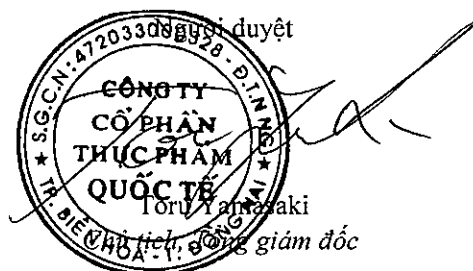 Người duyệt
S.G.C.N: 472033000328 - Đ.T.N
CÔNG TY
CỔ PHẦN
THỰC PHẨM
QUỐC TẾ
TP. BIÊN HÒA - T. ĐỒNG NAI
Toru Yamasaki
Chủ tịch, Tổng giám đốc